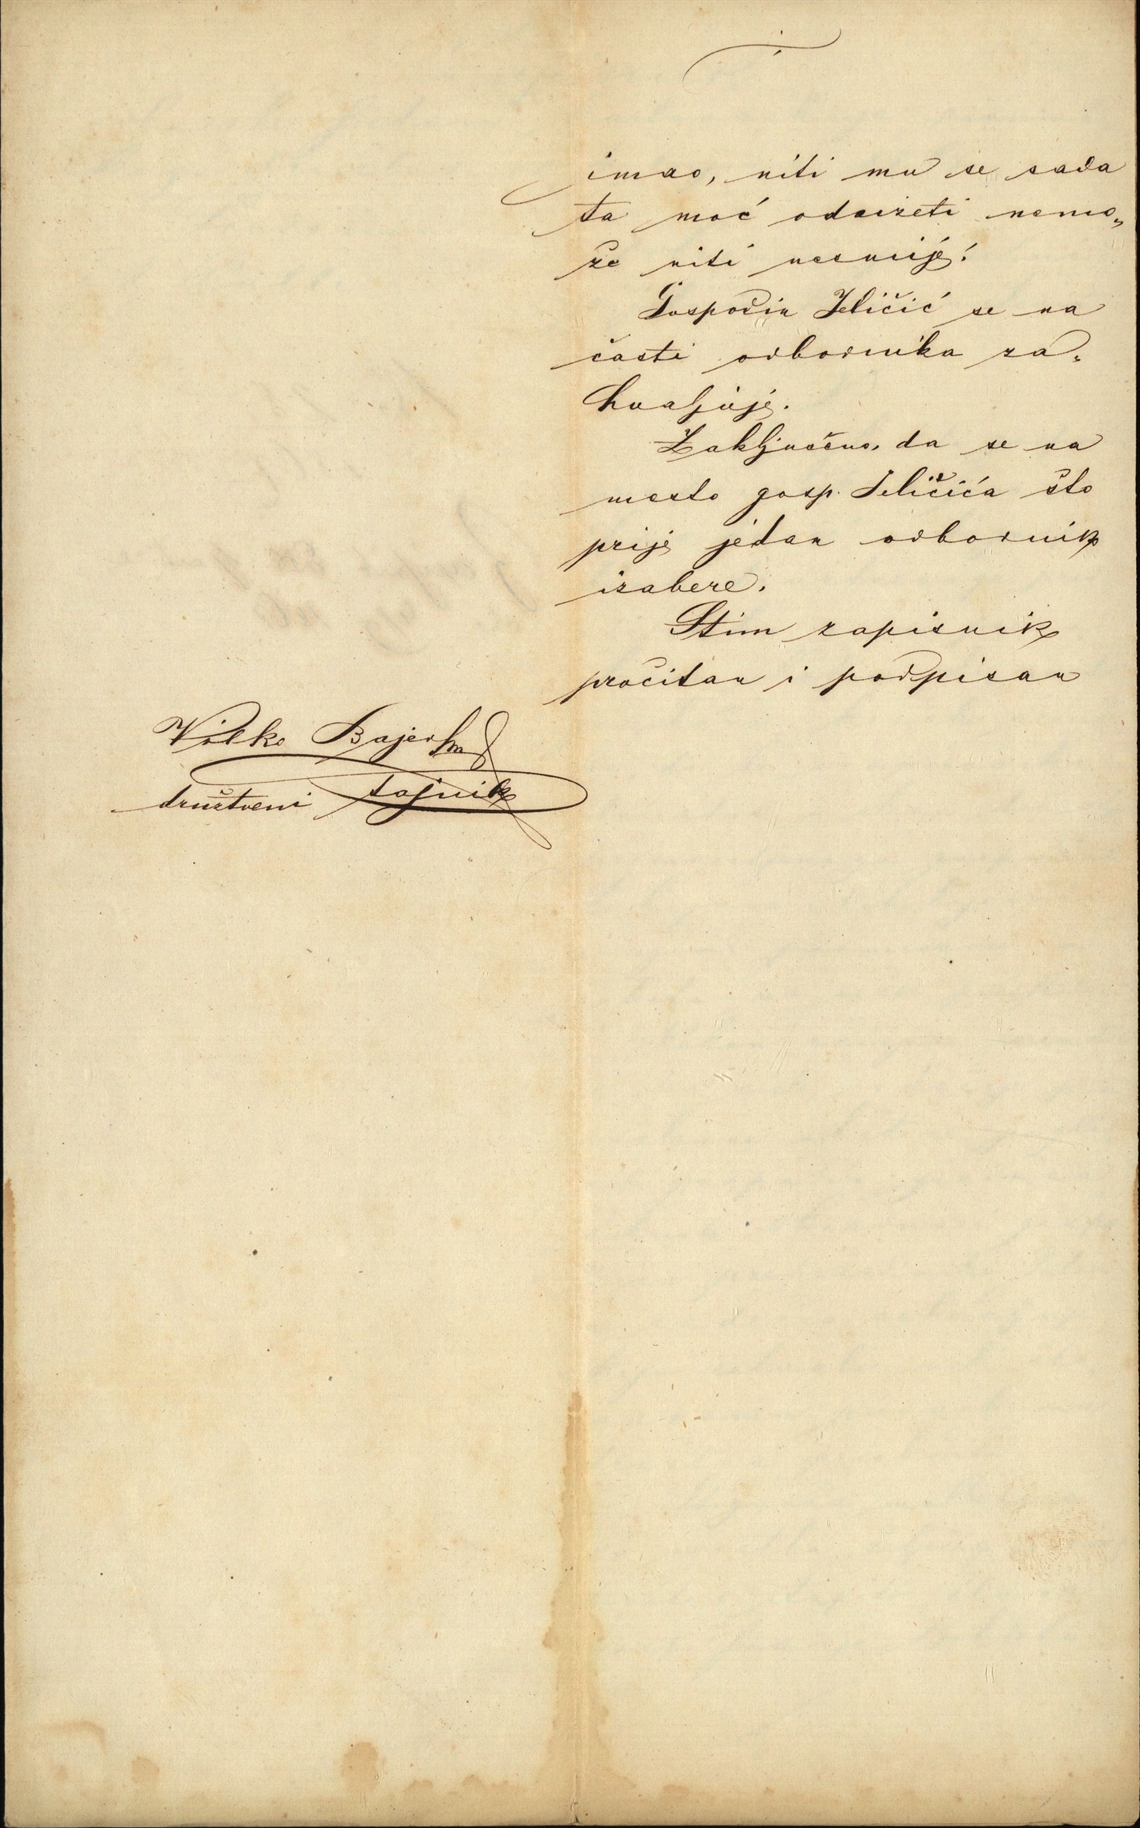 imao, niti mu se sada
ta moć oduzeti nemo„
že niti nesmije!
Gospodin Jeličić se na
časti odbornika za„
hvaljuje.
Zaključeno, da se na
mesto gosp. Jeličića što
prije jedan odbornik
izabere.
Stim zapisnik
pročitan i podpisan
društveni tajnik